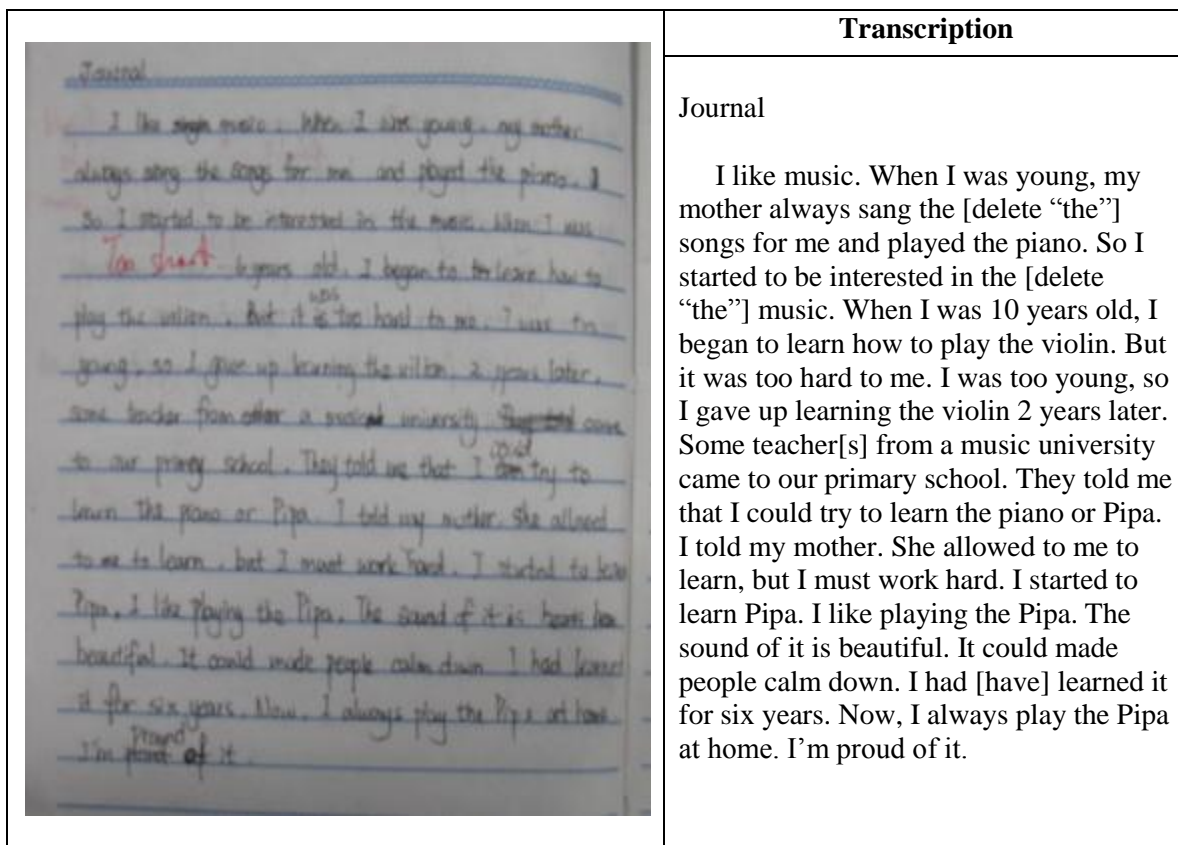 Journal
I like music. When I was young, my mother
always sang the songs for me and played the piano.
So I started to be interested in the music. When I was
Too short
6 years old, I began to learn how to
was
play the villion. But it is too hard to me. I was too
young, so I gave up learning the villion. 2 years later,
some teacher from a music university came
could
to our primary school. They told me that I can try to
learn the piano or Pipa. I told my mother. She allowed
to me to learn, but I must work hard. I started to learn
Pipa. I like Playing the Pipa. The sound of it is
beautiful. It could made people calm down. I had learned
it for six years. Now, I always play the Pipa at home.
Pround
I'm of it.
Transcription
Journal
I like music. When I was young, my
mother always sang the [delete “the”]
songs for me and played the piano. So I
started to be interested in the [delete
“the”] music. When I was 10 years old, I
began to learn how to play the violin. But
it was too hard to me. I was too young, so
I gave up learning the violin 2 years later.
Some teacher[s] from a music university
came to our primary school. They told me
that I could try to learn the piano or Pipa.
I told my mother. She allowed to me to
learn, but I must work hard. I started to
learn Pipa. I like playing the Pipa. The
sound of it is beautiful. It could made
people calm down. I had [have] learned it
for six years. Now, I always play the Pipa
at home. I’m proud of it.